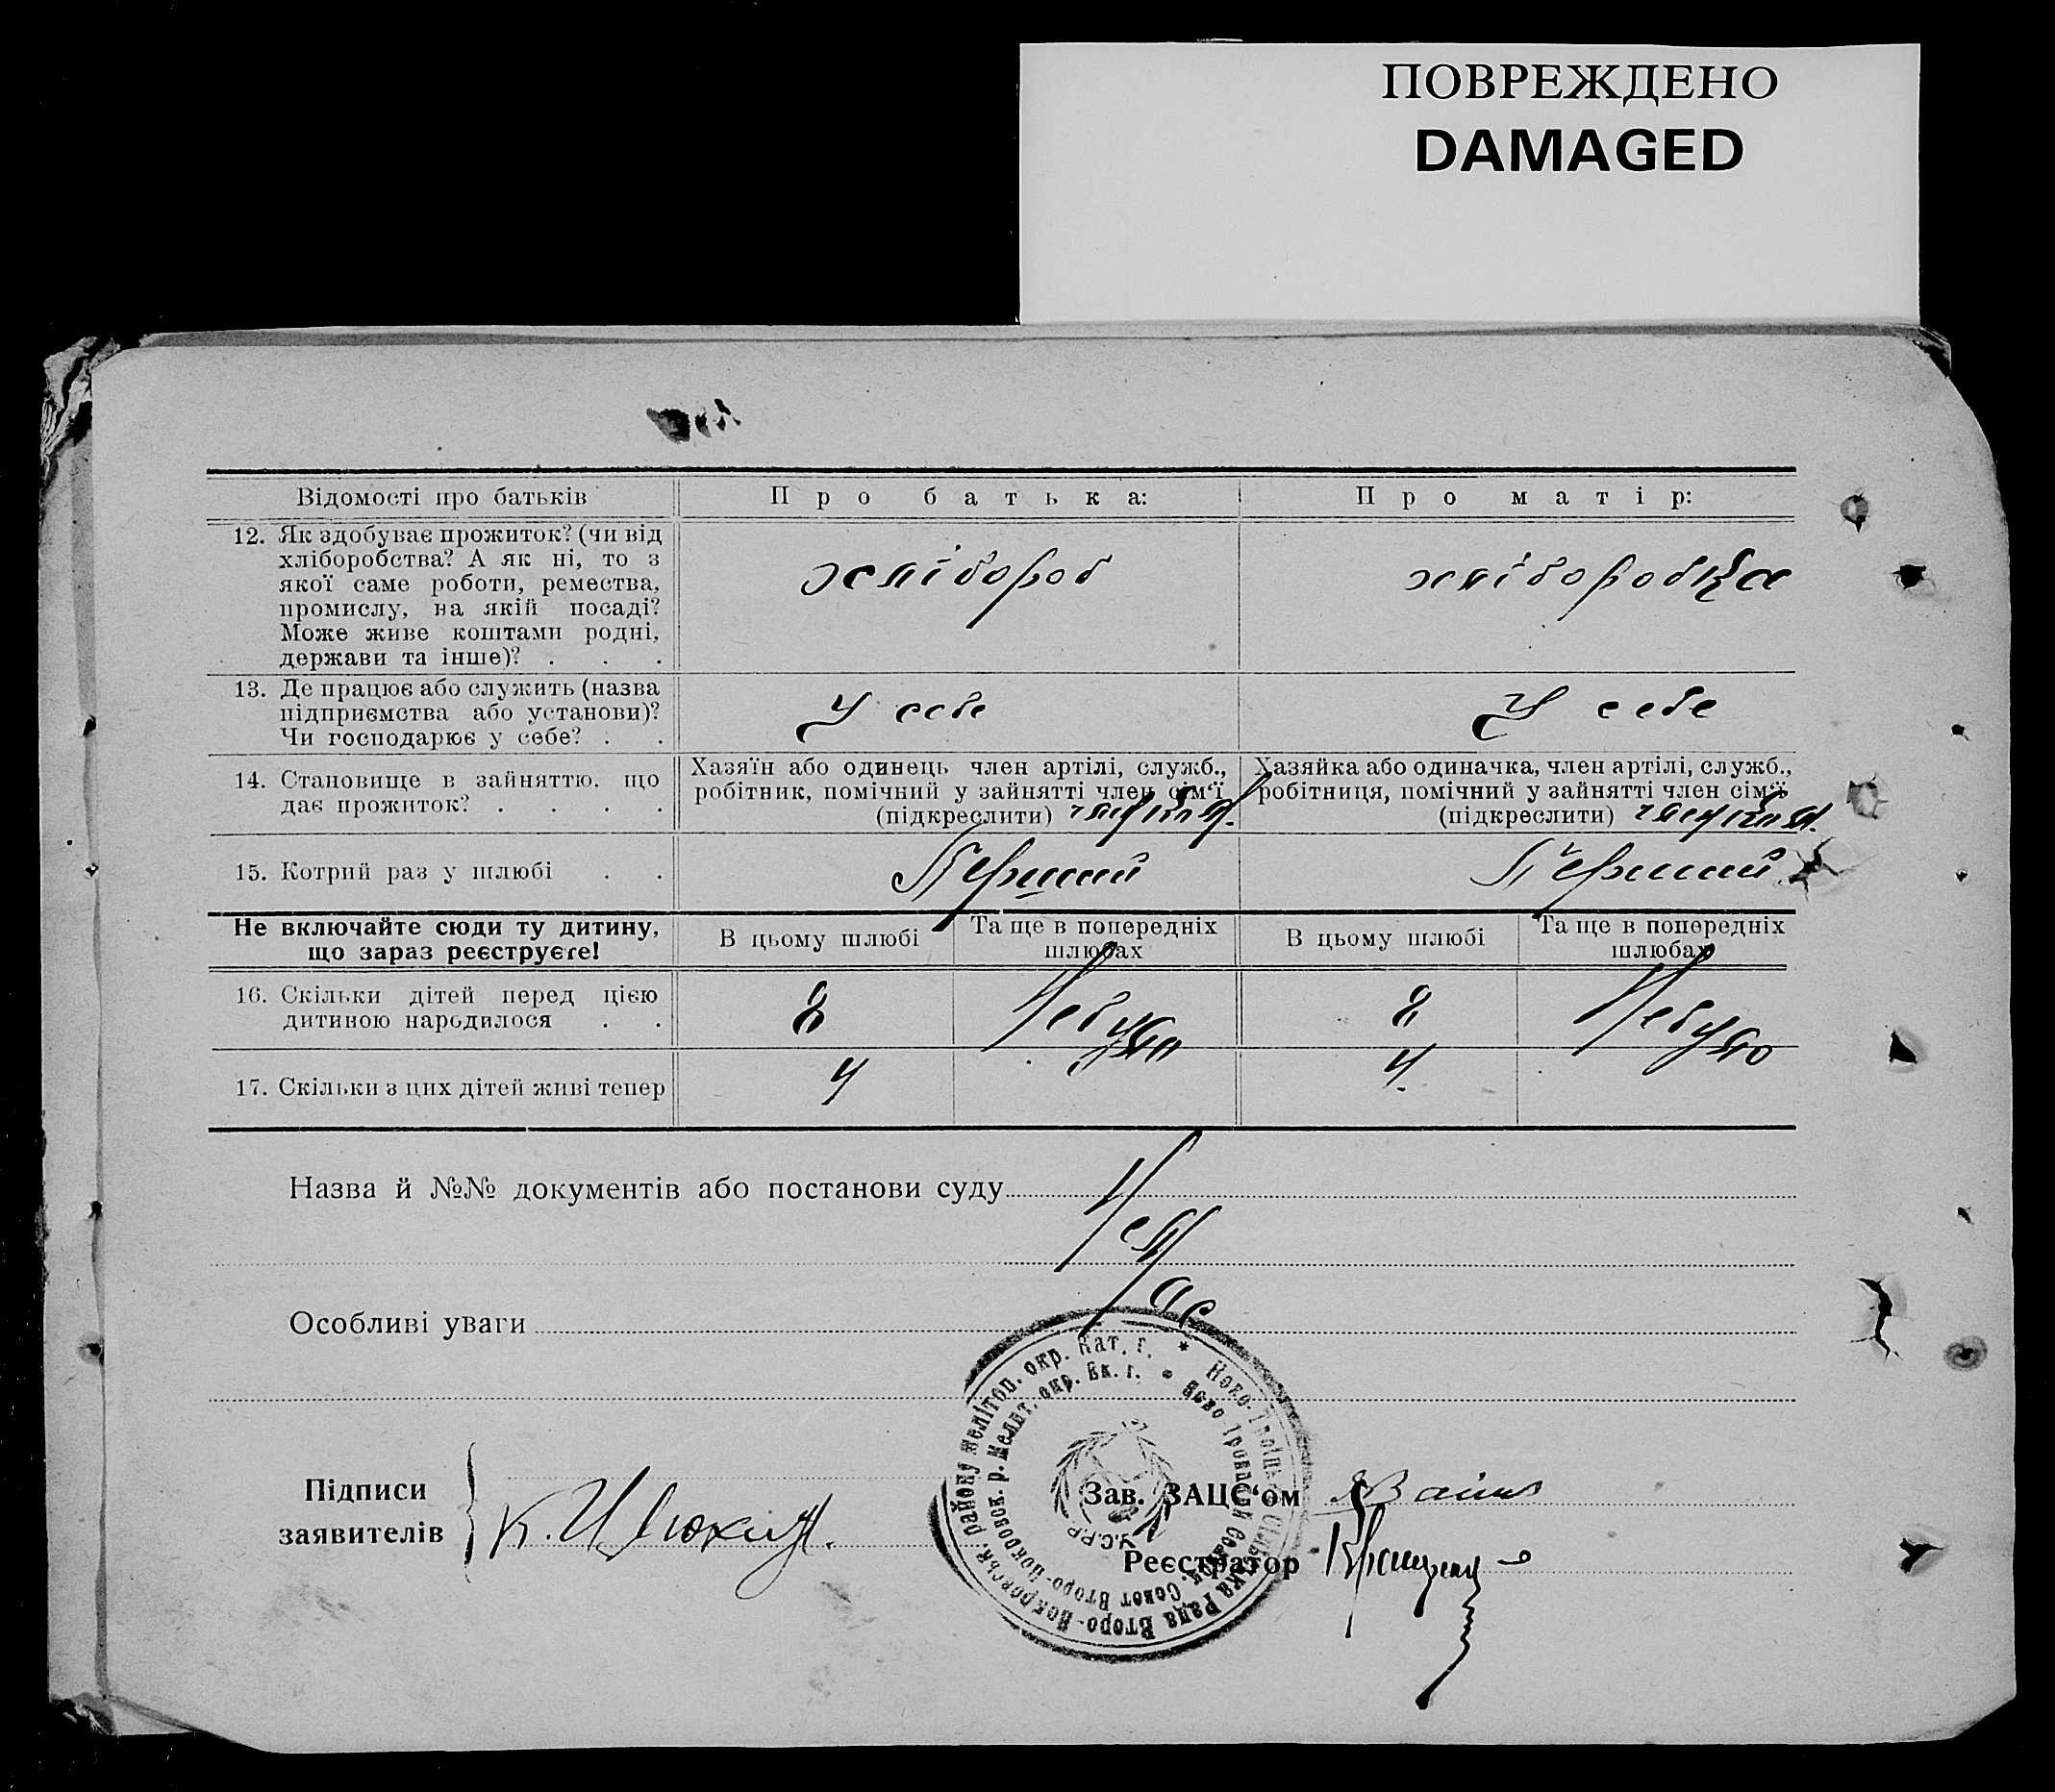 ПОВРЕЖДЕНО
DAMAGED
Відомості про батьків
Про батька:
Про матір:
12. Як здобуває прожиток? (чи від
хліборобства? А як ні, то з
якої саме роботи, ремества,
промислу, на якій посаді?
Може живе коштами родні,
держави та інше)? . . .
хлібороб
хлібороб́ка
13. Де працює або служить (назва
підприємства або установи)?
Чи господарює у себе? . .
У себе
У себе
14. Становище в зайняттю, що
дає прожиток? . . . .
Хазяїн або одинець член артілі, служб.,
робітник, помічний у зайнятті член сім‘ї
(підкреслити)
Хазяйка або одиначка, член артілі, служб.,
робітниця, помічний у зайнятті член сім‘ї
(підкреслити)
15. Котрий раз у шлюбі . .
Перший
Перший
Не включайте сюди ту дитину,
що зараз реєструєте!
В цьому шлюбі
Та ще в попередніх
шлюбах
В цьому шлюбі
Та ще в попередніх
шлюбах
16. Скільки дітей перед цією
дитиною народилося . .
8
Небуло
8
Небуло
17. Скільки з цих дітей живі тепер
4
4
Назва й №№ документів або постанови суду
Немає
Особливі уваги
Підписи
заявителів
К.
Зав. ЗАЦС‘ом
Реєстратор
Ново-Троіцька Сільська Рада Второ-Покровськ. району Мелітоп. окр. Кат. г.
Ново Троицкий Сельск. Совет Второ-Покровск. р. Мелит. окр. Ек. г.
У.С.Р.Р.